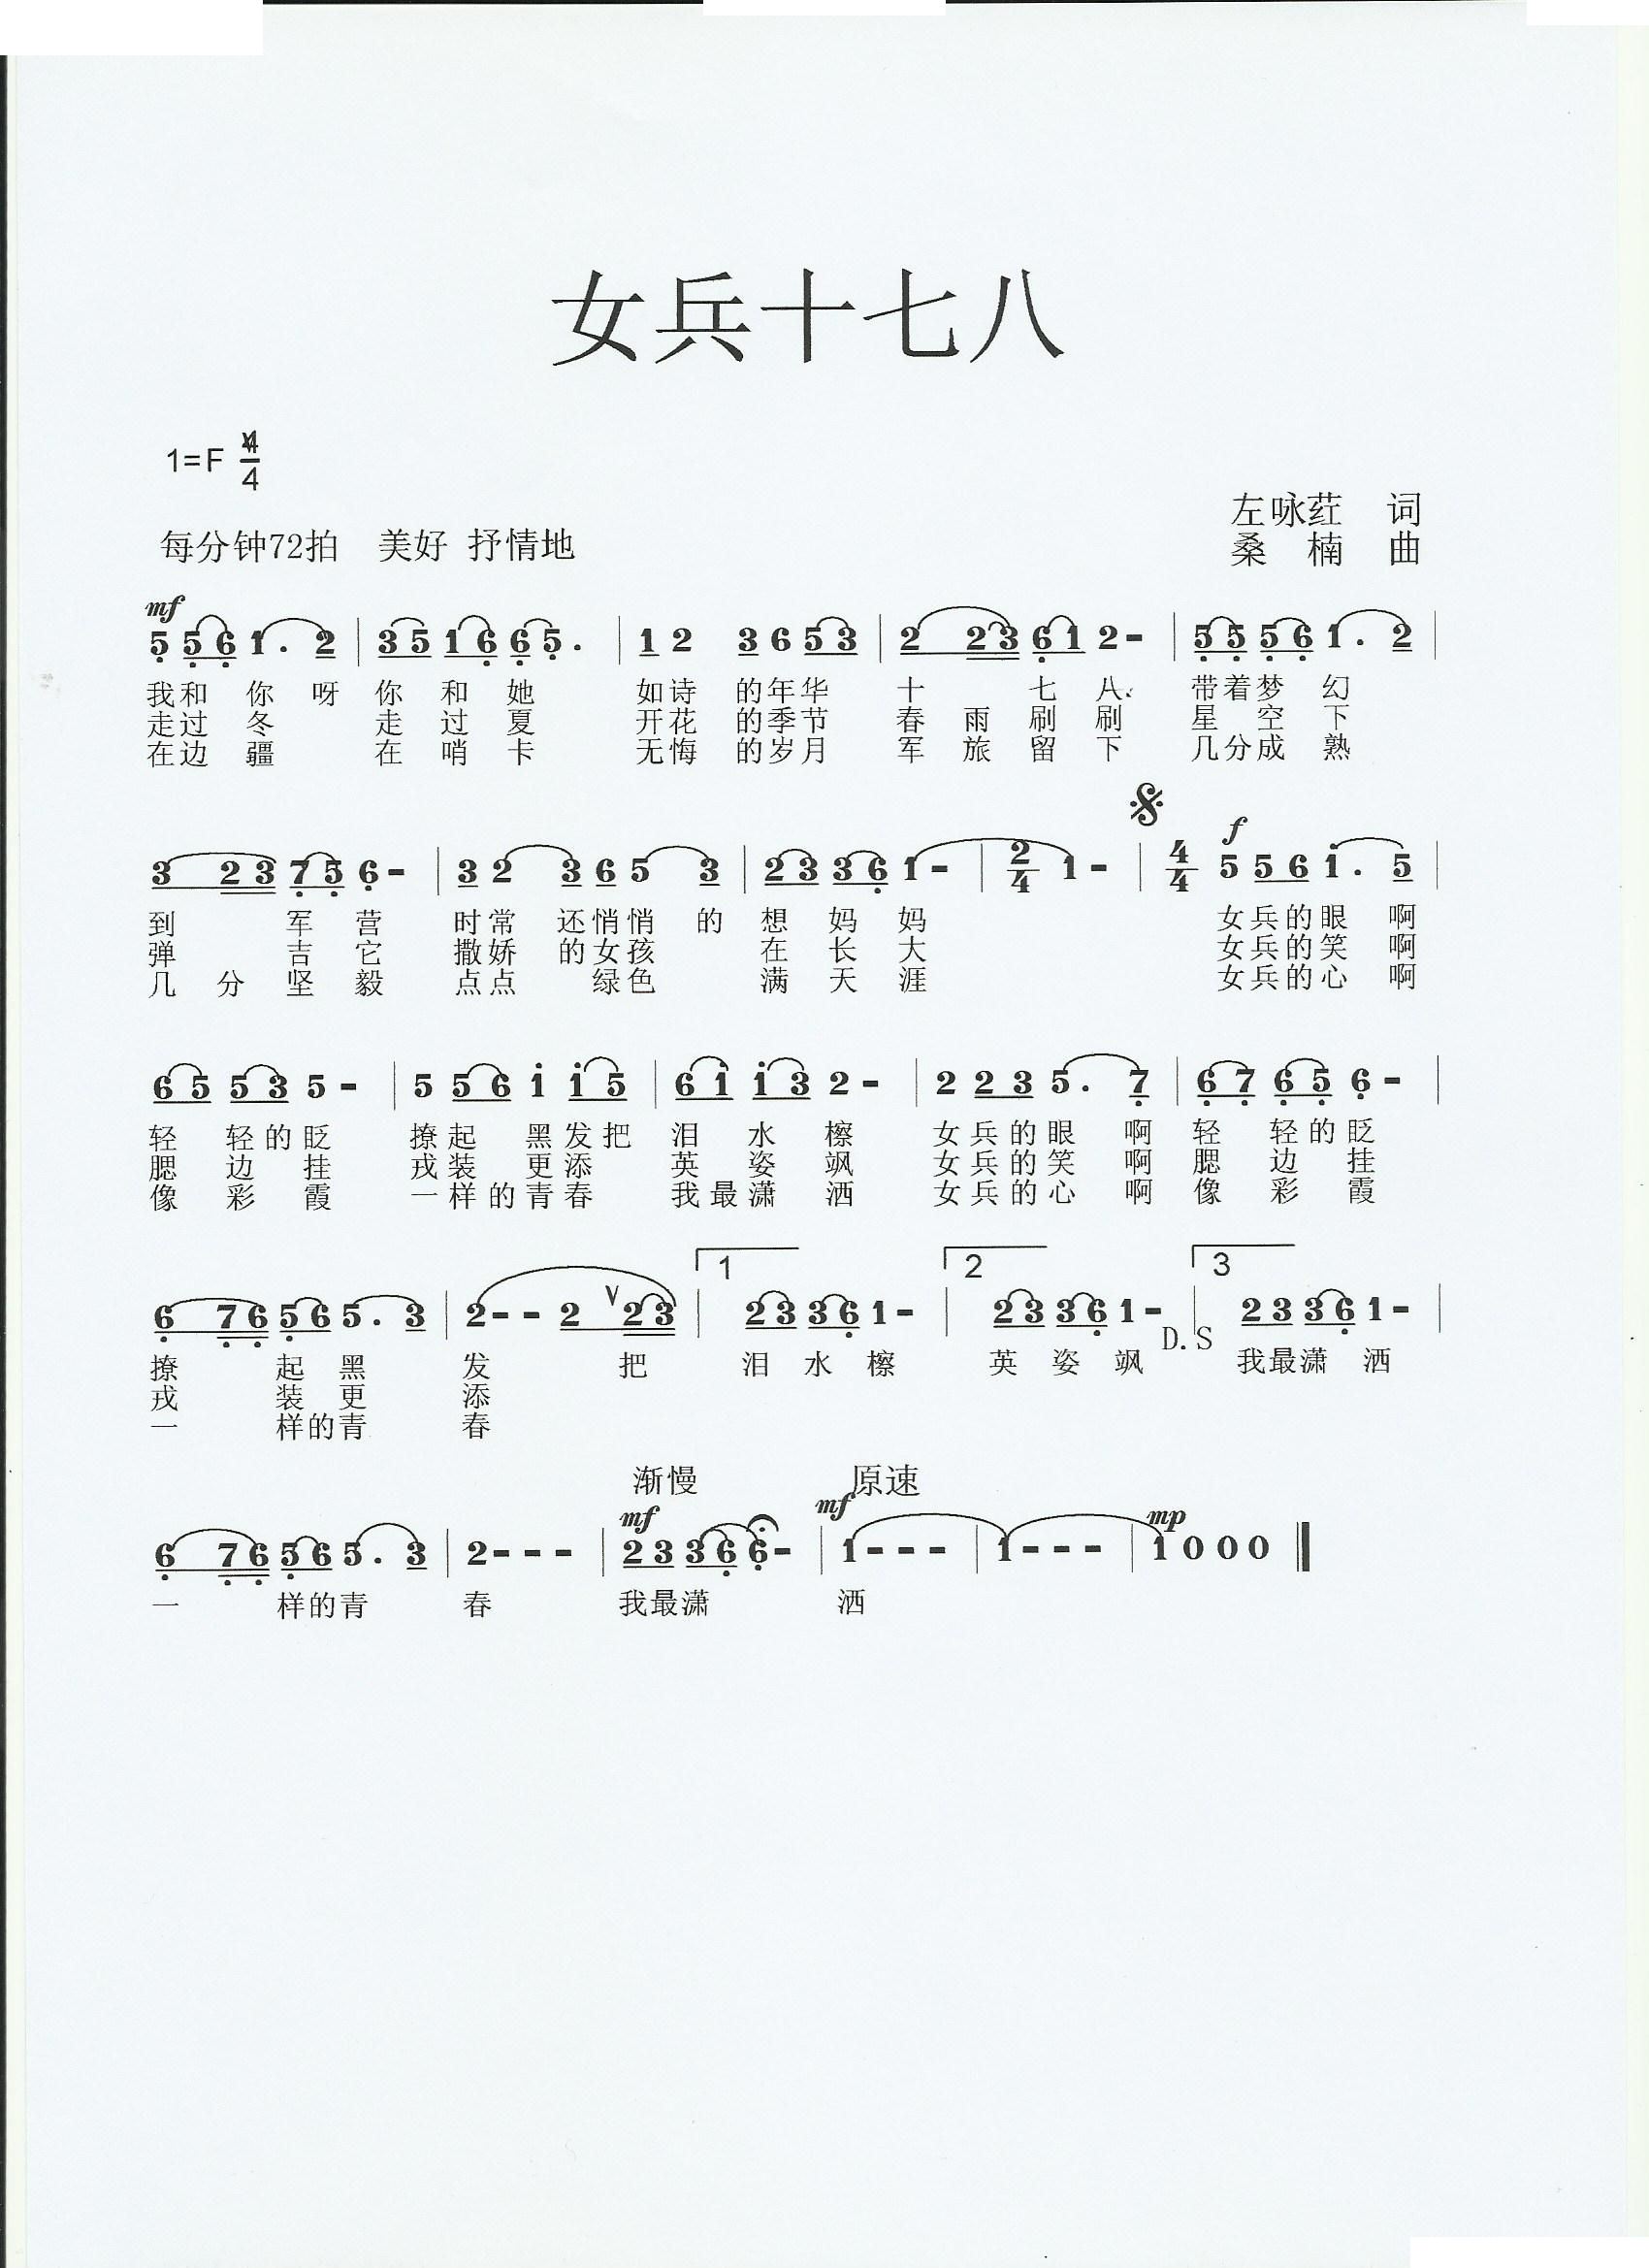 女兵十七八
1=F 4/4
左咏荭 词
每分钟72拍 美好 抒情地
桑楠 曲
mf
5 5 6 1 . 2 | 3 5 1 6 6 5 . | 1 2 3 6 5 3 | 2 2 3 6 1 2 - | 5 5 5 6 1 . 2 |
我和 你 呀 你 和 她 如诗 的年华 十 七 八、 带着梦 幻
走过 冬 走 过 夏 开花 的季节 春 雨 刷 刷 星 空 下
在边 疆 在 哨 卡 无悔 的岁月 军 旅 留 下 几分成 熟
f
3 2 3 7 5 6 - | 3 2 3 6 5 3 | 2 3 3 6 1 - | 2/4 1 - | 4/4 5 5 6 1 . 5 |
到 军 营 时常 还悄悄 的 想 妈 妈 女兵的眼 啊
弹 吉 它 撒娇 的女孩 在 长 大 女兵的笑 啊
几 分 坚 毅 点点 绿色 满 天 涯 女兵的心 啊
6 5 5 3 5 - | 5 5 6 1 1 5 | 6 1 1 3 2 - | 2 2 3 5 . 7 | 6 7 6 5 6 - |
轻 轻的眨 撩起 黑发把 泪 水 檫 女兵的眼 啊 轻 轻的眨
腮 边 挂 戎装 更添 英 姿 飒 女兵的笑 啊 腮 边 挂
像 彩 霞 一样的青春 我最潇 洒 女兵的心 啊 像 彩 霞
1 2 3
6 7 6 5 6 5 . 3 | 2 - - 2 2 3 | 2 3 3 6 1 - | 2 3 3 6 1 - | 2 3 3 6 1 - |
D.S
撩 起 黑 发 把 泪 水 檫 英 姿 飒 我最潇 洒
戎 装 更 添
一 样的青 春
渐慢 原速
mf mf mp
6 7 6 5 6 5 . 3 | 2 - - - | 2 3 3 6 6 - | 1 - - - | 1 - - - | 1 0 0 0
一 样的青 春 我最潇 洒